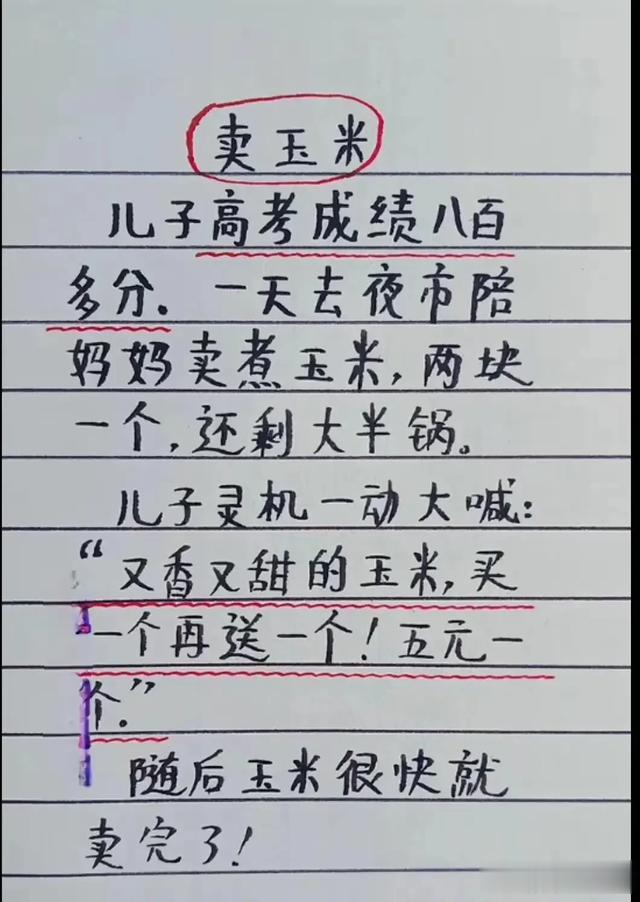 卖玉米
儿子高考成绩八百
多分。一天去夜市陪
妈妈卖煮玉米,两块
一个,还剩大半锅。
儿子灵机一动大喊:
“又香又甜的玉米,买
一个再送一个!五元一
个。”
随后玉米很快就
卖完了!